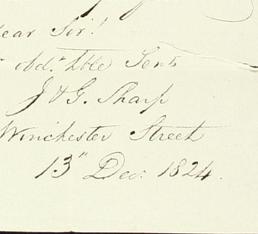 ear Sir!
Obd.t Hble Servts
J & G. Sharp
Winchester Street
13" Dec: 1824.